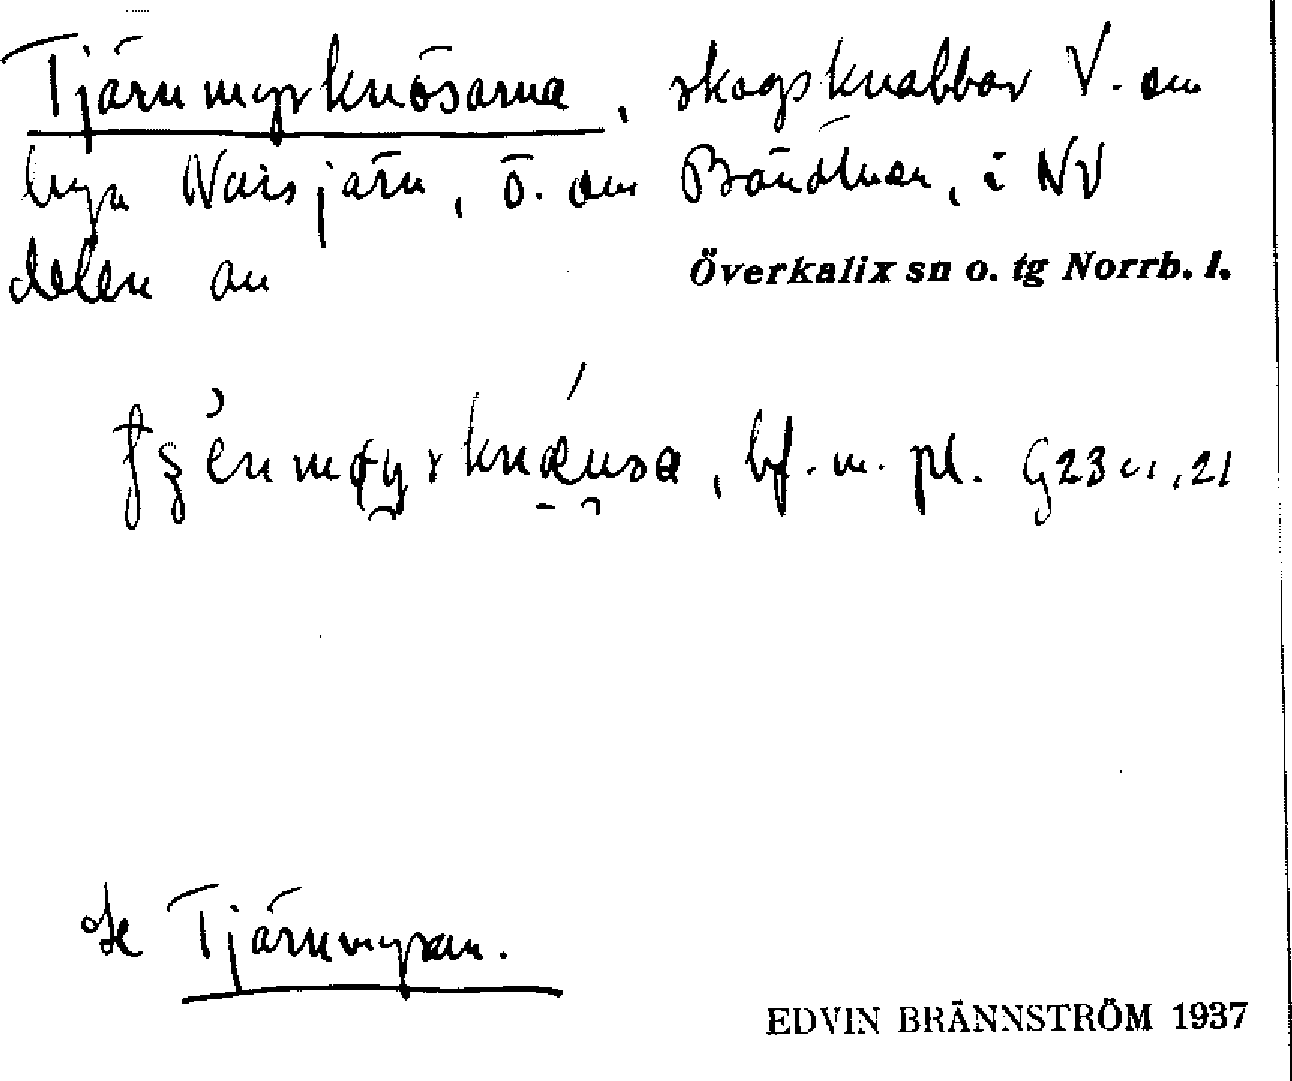 Tjärnmyrknösarna, skogsknabbar V. om
byn Naisjärn, ö. om Bäudtman, i NV
delen av Överkalix sn o. tg Norrb. l.
bf. m. pl. G23 c1, 21
Se Tjärnmyran.
EDVIN BRÄNNSTRÖM 1937